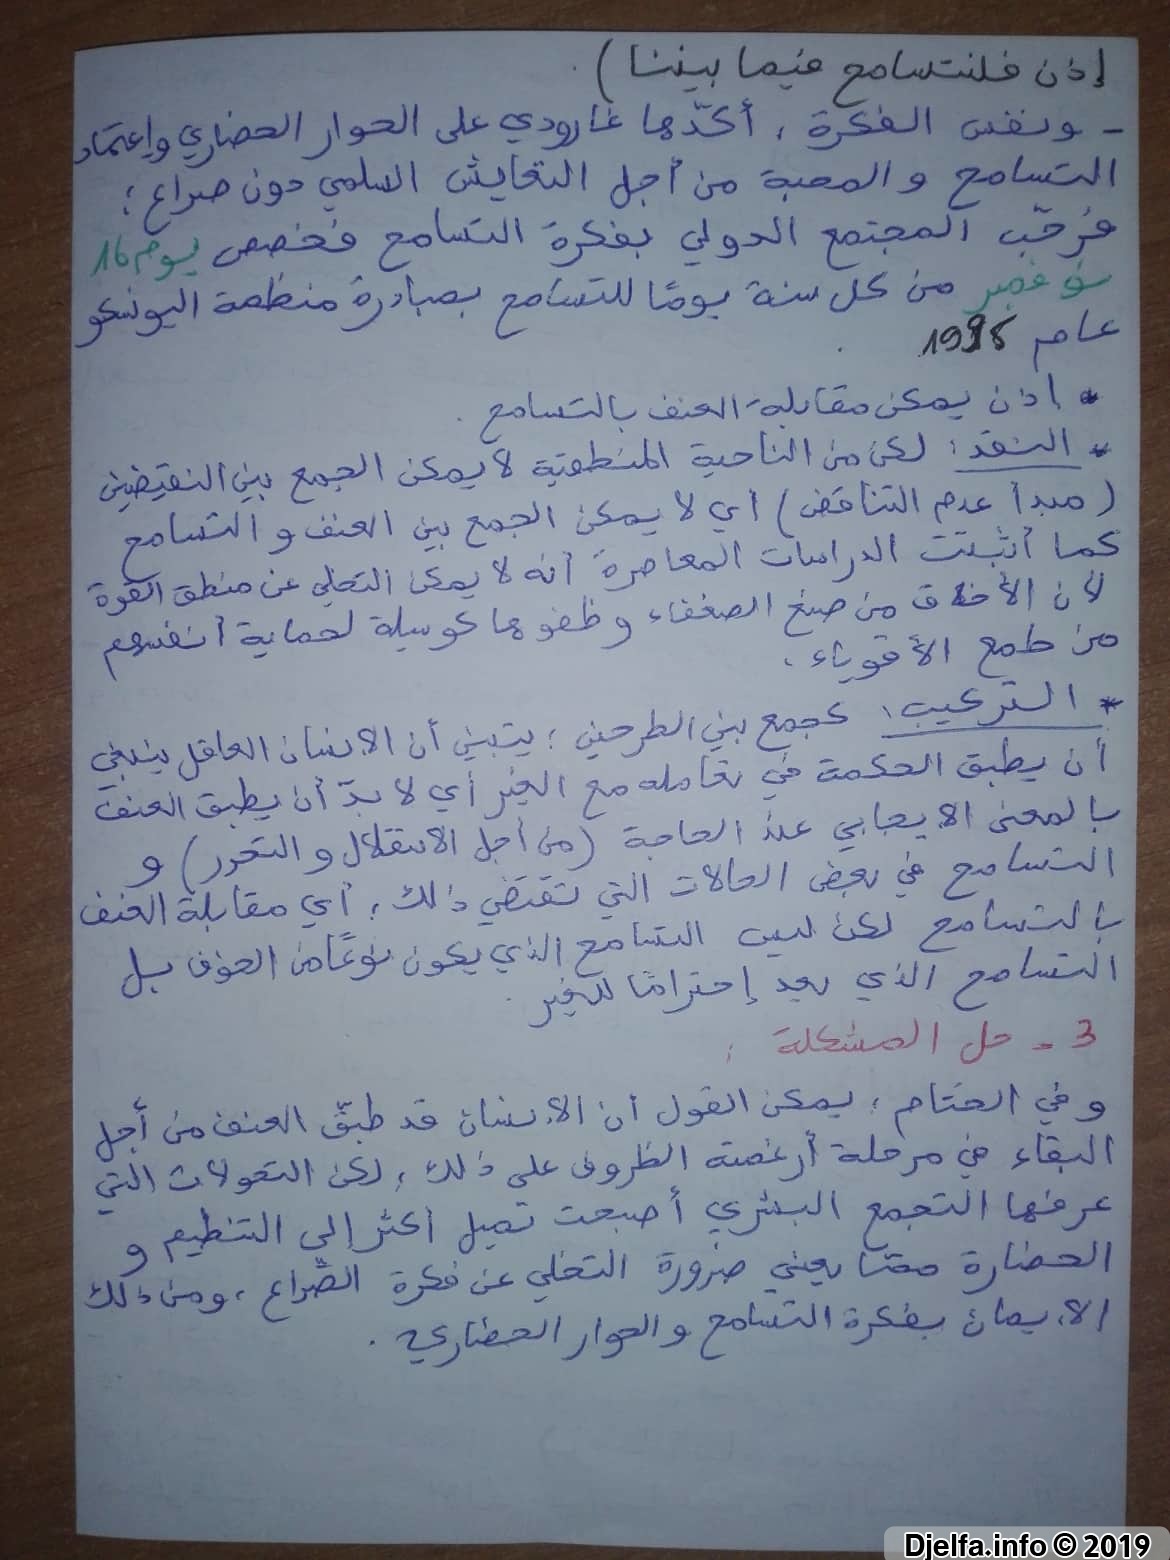 إذن فلنتسامح فيما بيننا) .
- ونفس الفكرة ، أكدّها غارودي على الحوار الحضاري وإعتماد
التسامح و المحبة من أجل التعايش السلمي دون صراع ؛
فرحّب المجتمع الدولي بفكرة التسامح فخصص يوم 16
نوفمبر من كل سنة يومًا للتسامح بمبادرة منظمة اليونسكو
عام 1995 .
* اذن يمكن مقابلة العنف بالتسامح .
* النقد : لكن من الناحية المنطقية لا يمكن الجمع بين النقيضين
(مبدأ عدم التناقض) أي لا يمكن الجمع بين العنف و التسامح
كما أثبتت الدراسات المعاصرة أنه لا يمكن التخلي عن منطق القوة
لأن الأخلاق من صنع الضعفاء وظفوها كوسيلة لحماية أنفسهم
من طمع الأقوياء .
* التركيب : كجمع بين الطرحين ؛ يتبين أن الانسان العاقل ينبغي
أن يطبق الحكمة في تعامله مع الغير أي لا بدّ أن يطبق العنف
بالمعنى الايجابي عند الحاجة (من أجل الاستقلال و التحرر) و
التسامح في بعض الحالات التي تقتضي ذلك ، أي مقابلة العنف
بالتسامح لكن ليس التسامح الذي يكون نوعًا من الخوف بل
التسامح الذي يعد إحترامًا للغير .
3 - حل المشكلة :
وفي الختام ، يمكن القول أن الانسان قد طبّق العنف من أجل
البقاء في مرحلة أرغمته الظروف على ذلك ، لكن التحولات التي
عرفها التجمع البشري أصبحت تميل أكثر إلى التنظيم و
الحضارة ممّا يعني ضرورة التخلي عن فكرة الصّراع ، ومن ذلك
الايمان بفكرة التسامح والحوار الحضاري .
Djelfa.info © 2019